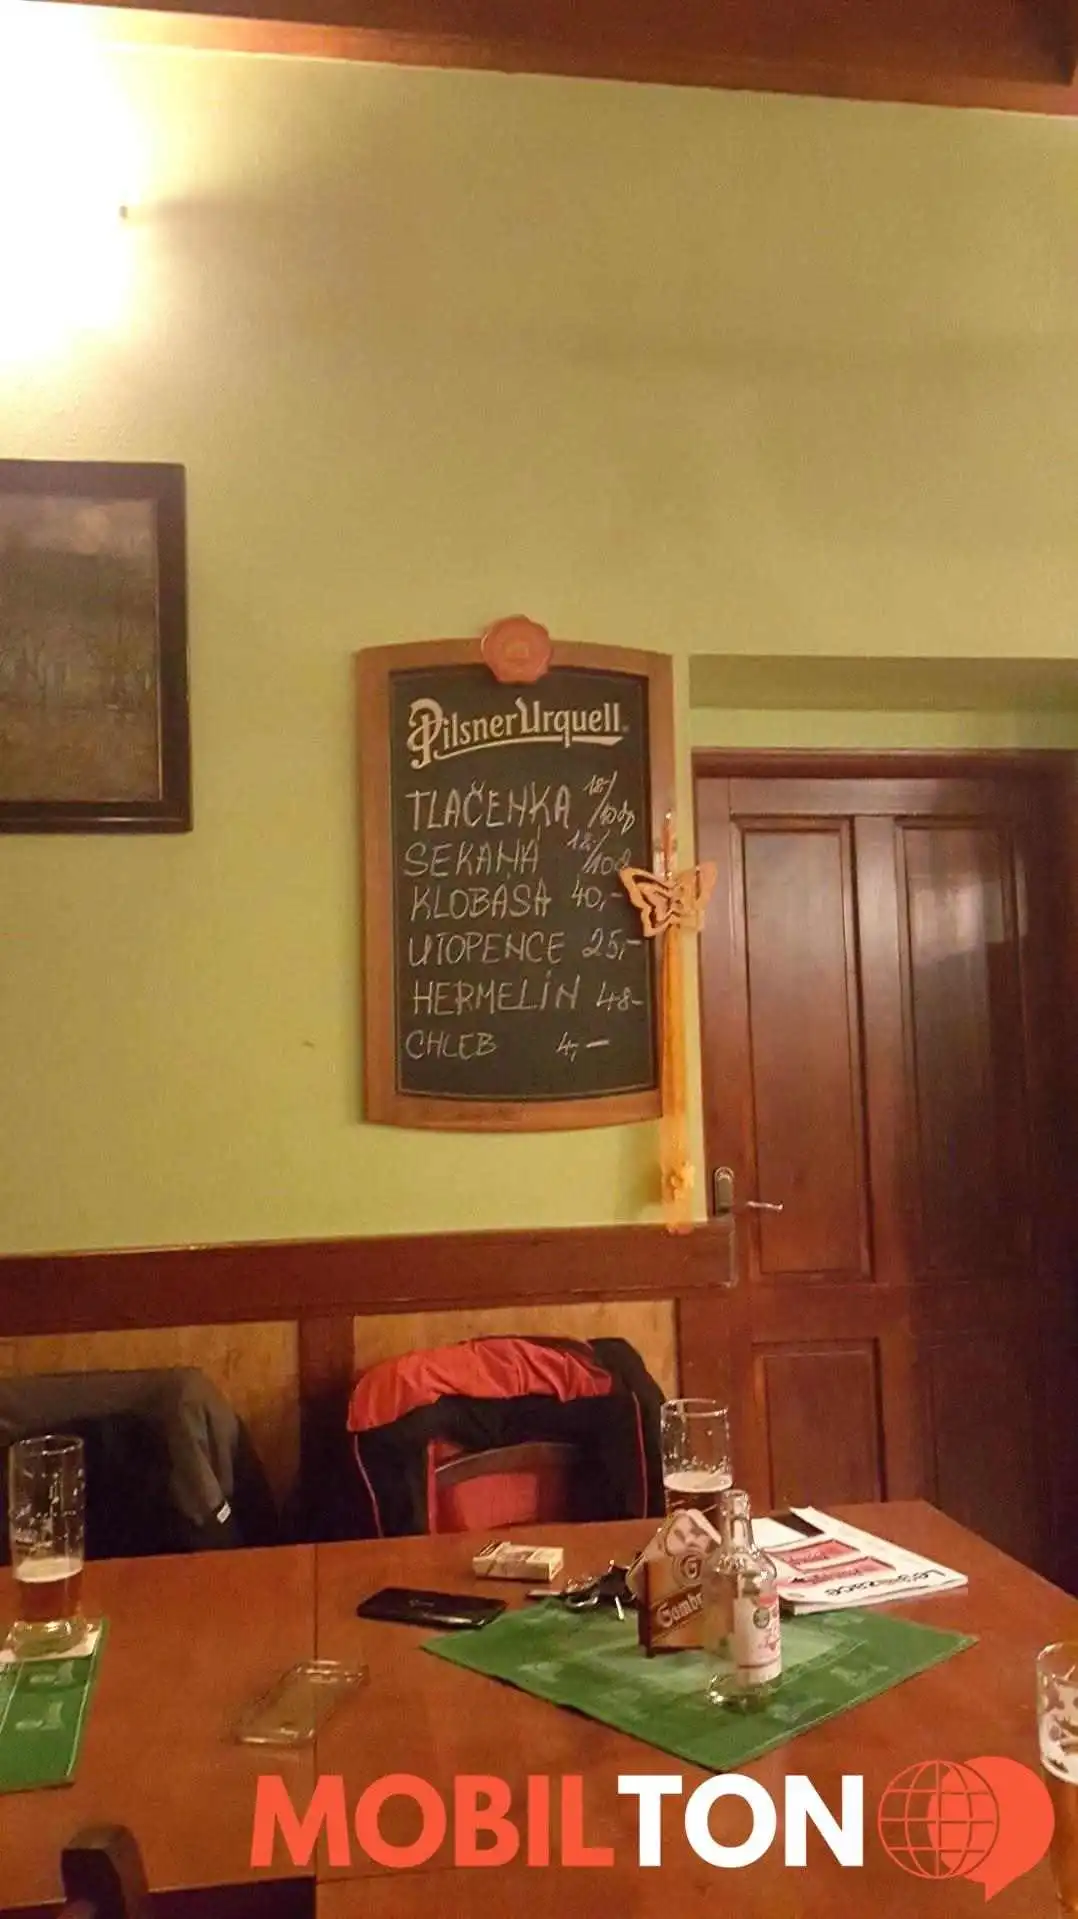 Pilsner Urquell
TLAČENKA 18,-/10dg
SEKANÁ 18,-/10d
KLOBÁSA 40,-
UTOPENCE 25,-
HERMELÍN 48-
CHLEB 4,-
G
Gambr
MOBILTON